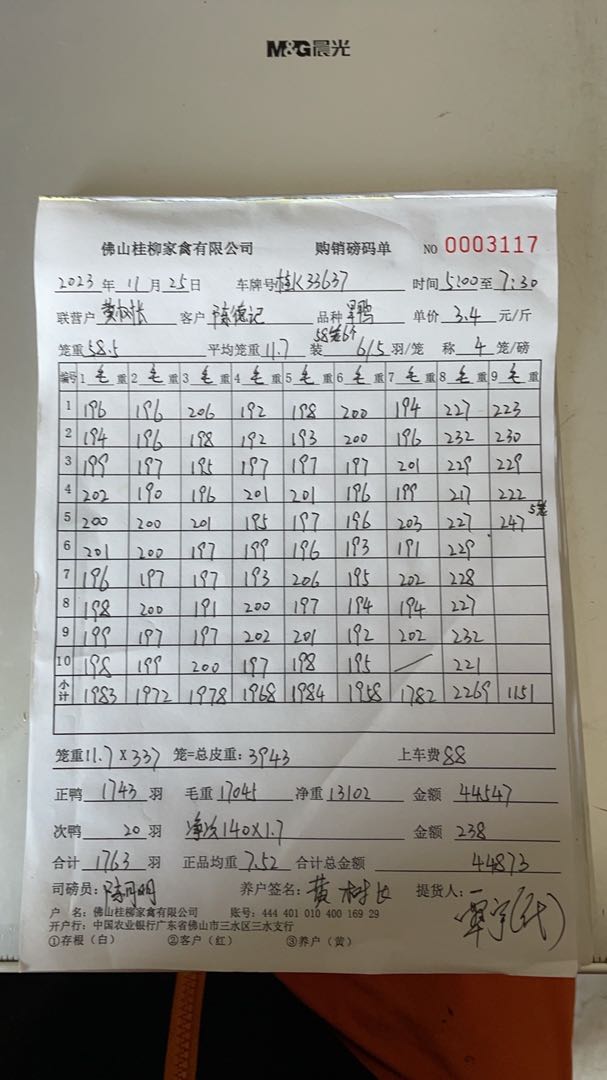 M&G晨光
佛山桂柳家禽有限公司 购销磅码单 NO 0003117
2023年11月25日 车牌号桂K33637 时间5:00至7:30
联营户黄树长 客户陈德记 品种 鸭 单价3.4元/斤
58笼6个
笼重58.5 平均笼重11.7 装6/5羽/笼 称4笼/磅
编号 1毛重 2毛重 3毛重 4毛重 5毛重 6毛重 7毛重 8毛重 9毛重
1 196 196 206 192 198 200 194 227 223
2 194 196 198 192 193 200 196 232 230
3 199 197 195 197 197 197 201 229 229
4 202 190 196 201 201 196 199 217 222
5 200 200 201 195 197 196 203 227 247 5笼
6 201 200 197 199 196 193 191 229
7 196 197 197 193 206 195 202 228
8 198 200 191 200 197 194 194 227
9 199 197 197 202 201 192 202 232
10 198 199 200 197 198 195 / 221
小计 1983 1972 1978 1968 1984 1958 1782 2269 1151
笼重11.7×337笼=总皮重:3943 上车费88
正鸭1743羽 毛重17045 净重13102 金额44547
次鸭20羽 净次140×1.7 金额238
合计1763羽 正品均重7.52 合计总金额44873
司磅员:陈月明 养户签名:黄树长 提货人:覃宇(代)
户 名:佛山桂柳家禽有限公司 账号:444 401 010 400 169 29
开户行:中国农业银行广东省佛山市三水区三水支行
①存根(白) ②客户(红) ③养户(黄)